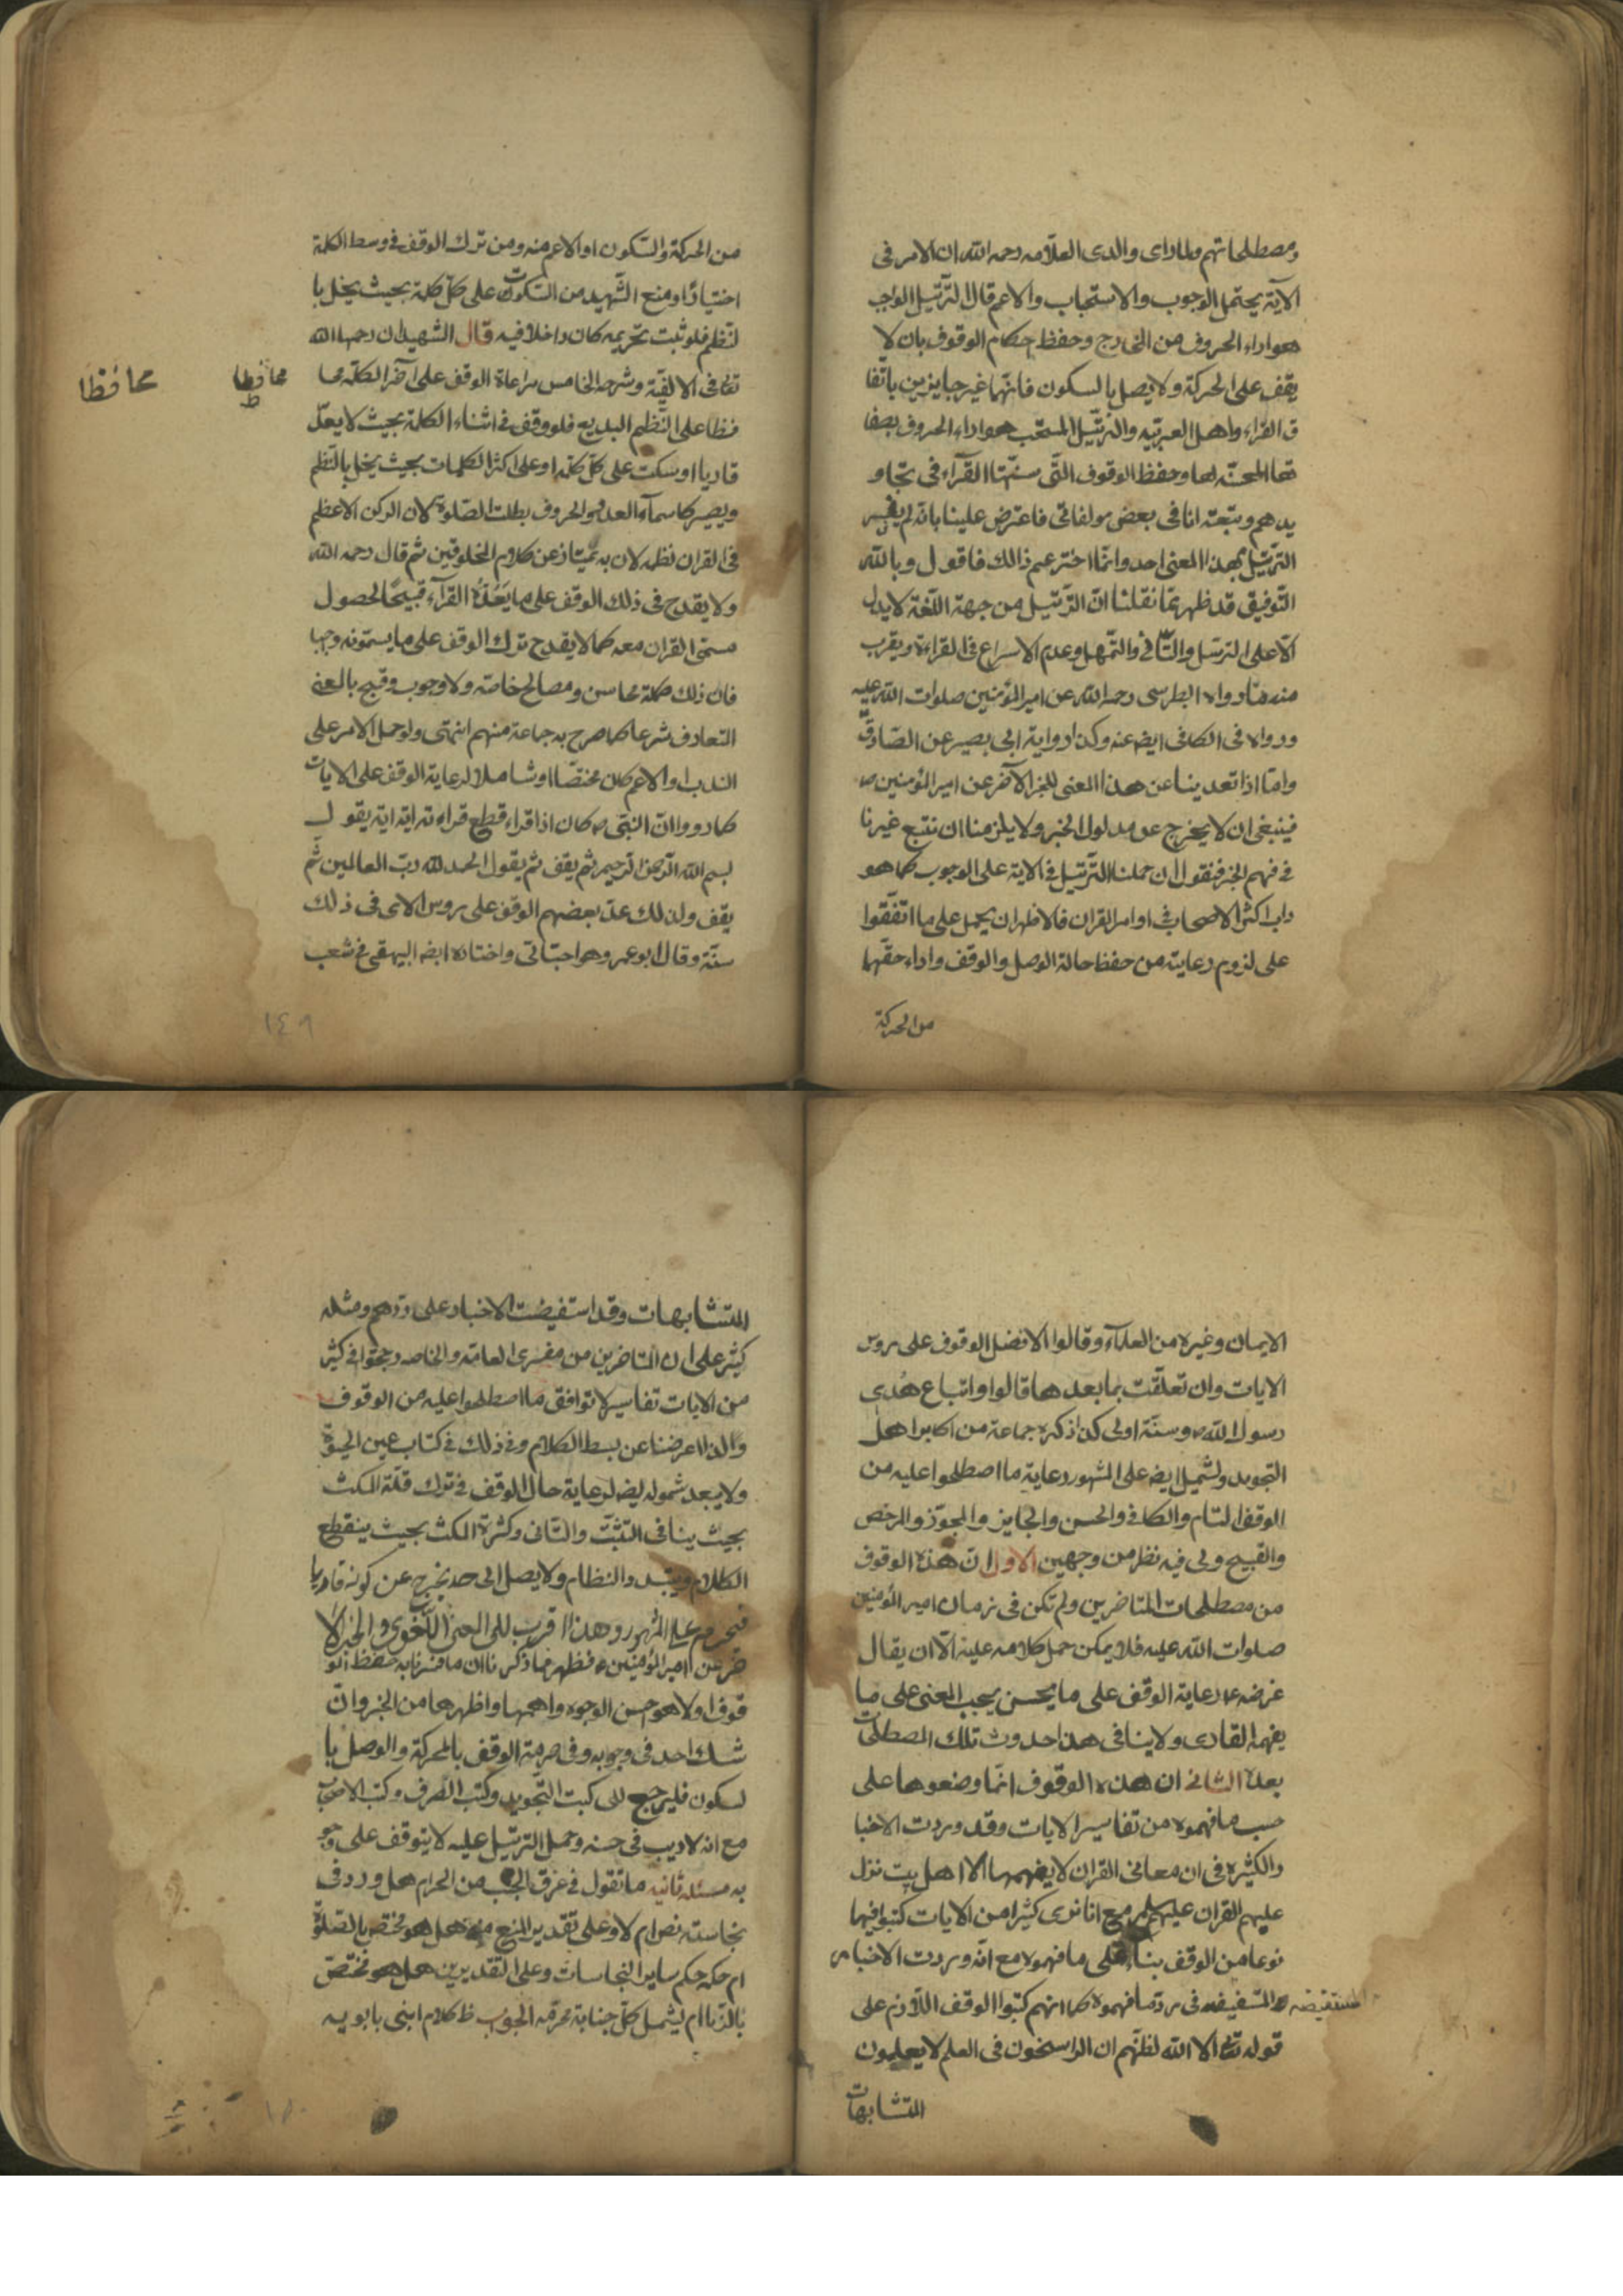 ومصطلحاتهم ولما رای والدی العلامه رحمه الله ان الامر فی
الآیة یحتمل الوجوب والاستحباب والاعم قال الترتیل الواجب
هو اداء الحروف من المخارج وحفظ احکام الوقوف بان لا
یقف علی الحرکة ولا یصل بالسکون فانهما غیر جایزین باتفا
ق القراء واهل العربیة والترتیل المستحب هو اداء الحروف بصفا
تها المحسنة لها وحفظ الوقوف التی سنتها القرآء فی تجاو
یدهم وتبعته انا فی بعض مولفاتی فاعترض علینا بانه لم یفسر
الترتیل بهذا المعنی احد وانما اخترعتم ذالک فاقول وبالله
التوفیق قد ظهر مما نقلنا ان الترتیل من جهة اللغة لا یدل
الا علی الترسل والتانی والتمهل وعدم الاسراع فی القراءة ویقرب
منه ما رواه الطبرسی رحمه الله عن امیر المؤمنین صلوات الله علیه
ورواه فی الکافی ایضه عنه وکذا روایة ابی بصیر عن الصادق
واما اذا تعدینا عن هذا المعنی للخبر الآخر عن امیر المؤمنین ص
فینبغی ان لا یخرج عن مدلول الخبر ولا یلزمنا ان نتبع غیرنا
فی فهم الخبر فنقول ان حملنا الترتیل فی الایة علی الوجوب کما هو
داب اکثر الاصحاب فی اوامر القران فالاظهر ان یحمل علی ما اتفقوا
علی لزوم رعایته من حفظ حالة الوصل والوقف واداء حقهما
من الحرکة
من الحرکة والسکون او الاعم منه ومن ترک الوقف فی وسط الکلمة
اختیارًا ومنع الشهید من السکوت علی کل کلمة بحیث یخل با
لنظم فلو ثبت تحریمه کان داخلا فیه قال الشهیدان رحمهما الله
تعالی فی الالفیة وشرحه الخامس مراعاة الوقف علی آخر الکلمة محا
محافظا
محافظا
فظا علی النظم البدیع فلو وقف فی اثناء الکلمة بحیث لا یعد
قاریا او سکت علی کل کلمة او علی اکثر الکلمات بحیث یخل بالنظم
ویصیر کاسمآء العدد والحروف بطلت الصلوة لان الرکن الاعظم
فی القران نظمه لان به یمتاز عن کلام المخلوقین ثم قال رحمه الله
ولا یقدح فی ذلک الوقف علی ما یعده القرآء قبیحًا لحصول
مسمی القران معه کما لا یقدح ترک الوقف علی ما یسمونه وجبا
فان ذلک کله محاسن ومصالح خاصة ولا وجوب وقبح بالمعنی
المتعارف شرعا کما صرح به جماعة منهم انتهی ولو حمل الامر علی
الندب او الاعم کان مختصا او شاملا لرعایة الوقف علی الایات
کما رووا ان النبی ص کان اذا قراء قطع قراءته ایة ایة یقول
بسم الله الرحمن الرحیم ثم یقف ثم یقول الحمد لله رب العالمین ثم
یقف ولذلک عد بعضهم الوقف علی روس الای فی ذلک
سنة وقال ابو عمر وهو احب الی واختاره ایضه البیهقی فی شعب
١٤٩
الایمان وغیره من العلمآء وقالوا الافضل الوقوف علی روس
الایات وان تعلقت بما بعدها قالوا واتباع هدی
رسول الله ص وسنته اولی کذا ذکره جماعة من اکابر اهل
التجوید ولیشمل ایضه علی المشهور رعایة ما اصطلحوا علیه من
الوقف التام والکافی والحسن والجایز والمجوز والمرخص
والقبیح ولی فیه نظر من وجهین الاول ان هذه الوقوف
من مصطلحات المتاخرین ولم تکن فی زمان امیر المؤمنین
صلوات الله علیه فلا یمکن حمل کلامه علیه الا ان یقال
غرضه ع رعایة الوقف علی ما یحسن بحسب المعنی علی ما
یفهمه القاری ولا ینافی هذا حدوث تلک المصطلحات
بعده الثانی ان هذه الوقوف انما وضعوها علی
حسب ما فهموه من تفاسیر الایات وقد وردت الاخبا
ر الکثیره فی ان معانی القران لا یفهمها الا اهل بیت نزل
علیهم القران علیهم السلام مع انا نری کثیرا من الایات کتبوا فیها
نوعا من الوقف بناء علی ما فهموه مع انه وردت الاخبار
المستفیضه فی رد ما فهموه کما انهم کتبوا الوقف اللازم علی
المستفیضه
قوله تعالی الا الله لظنهم ان الراسخون فی العلم لا یعلمون
المتشابهات
المتشابهات وقد استفیضت الاخبار علی ردهم ومثله
کثیر علی ان المتاخرین من مفسری العامة والخاصه رجحوا فی کثیر
من الایات تفاسیر لا توافق ما اصطلحوا علیه من الوقوف
ولذا اعرضنا عن بسط الکلام وفی ذلک فی کتاب عین الحیوة
ولا یبعد شموله ایضه لرعایة حال الوقف فی ترک قلة المکث
بحیث ینافی التثبت والتانی وکثرة المکث بحیث ینقطع
الکلام ویتبدد النظام ولا یصل الی حد یخرج عن کونه قاریا
فیحرم علی المشهور وهذا اقرب للمعنی اللغوی والخبر الا
خر عن امیر المؤمنین ع فظهر مما ذکرنا ان ما فسرنا به حفظ الو
قوف اولا هو احسن الوجوه واهمها واظهرها من الخبر وان
شک احد فی وجوبه وفی حرمة الوقف بالحرکة والوصل با
لسکون فلیرجع الی کتب التجوید وکتب الصرف وکتب الاصحاب
مع انه لا ریب فی حسنه وحمل الترتیل علیه لا یتوقف علی وجو
به مسئله ثانیه ما تقول فی عرق الجنب من الحرام هل ورد فی
نجاسته نص ام لا وعلی تقدیر المنع منه هل هو مختص بالصلوة
ام حکمه حکم سایر النجاسات وعلی التقدیرین هل هو مختص
بالزنا ام لیشمل کل جنابة محرمه الجواب ظ کلام ابنی بابویه
١٥٠